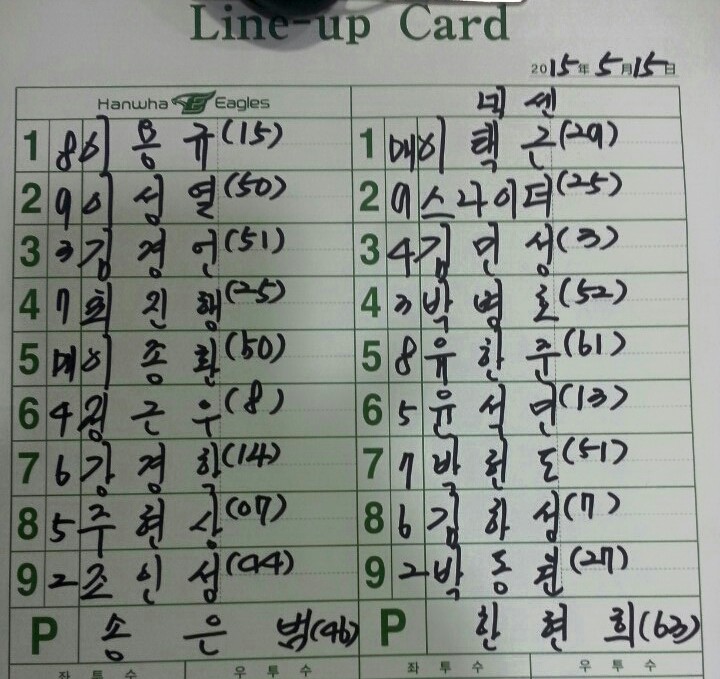 Line-up Card
2015年 5月 15日
Hanwha Eagles 넥센
1 8 이 용 규(15) 1 DH 이 택 근(29)
2 9 이 성 열(50) 2 9 스나이더(25)
3 3 김 경 언(51) 3 4 김 민 성(3)
4 7 최 진 행(25) 4 3 박 병 호(52)
5 DH 이 종 환(50) 5 8 유 한 준(61)
6 4 정 근 우(8) 6 5 윤 석 민(13)
7 6 강 경 학(14) 7 7 박 헌 도(51)
8 5 주 현 상(07) 8 6 김 하 성(7)
9 2 조 인 성(44) 9 2 박 동 원(27)
P 송 은 범(46) P 한 현 희(63)
좌 투 수 우 투 수 좌 투 수 우 투 수